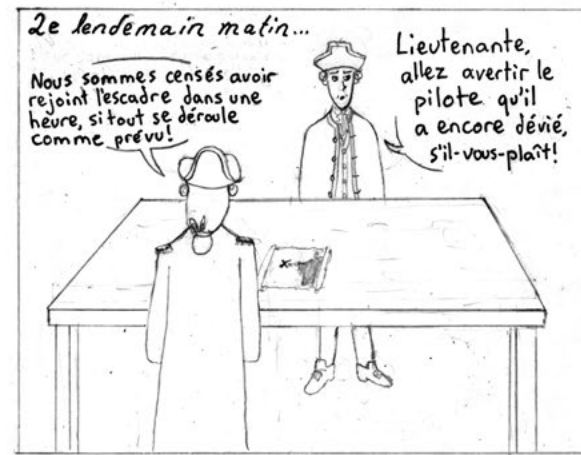 Le lendemain matin...
Nous sommes censés avoir
rejoint l'escadre dans une
heure, si tout se déroule
comme prévu!
Lieutenante,
allez avertir le
pilote qu'il
a encore dévié,
s'il-vous-plaît!